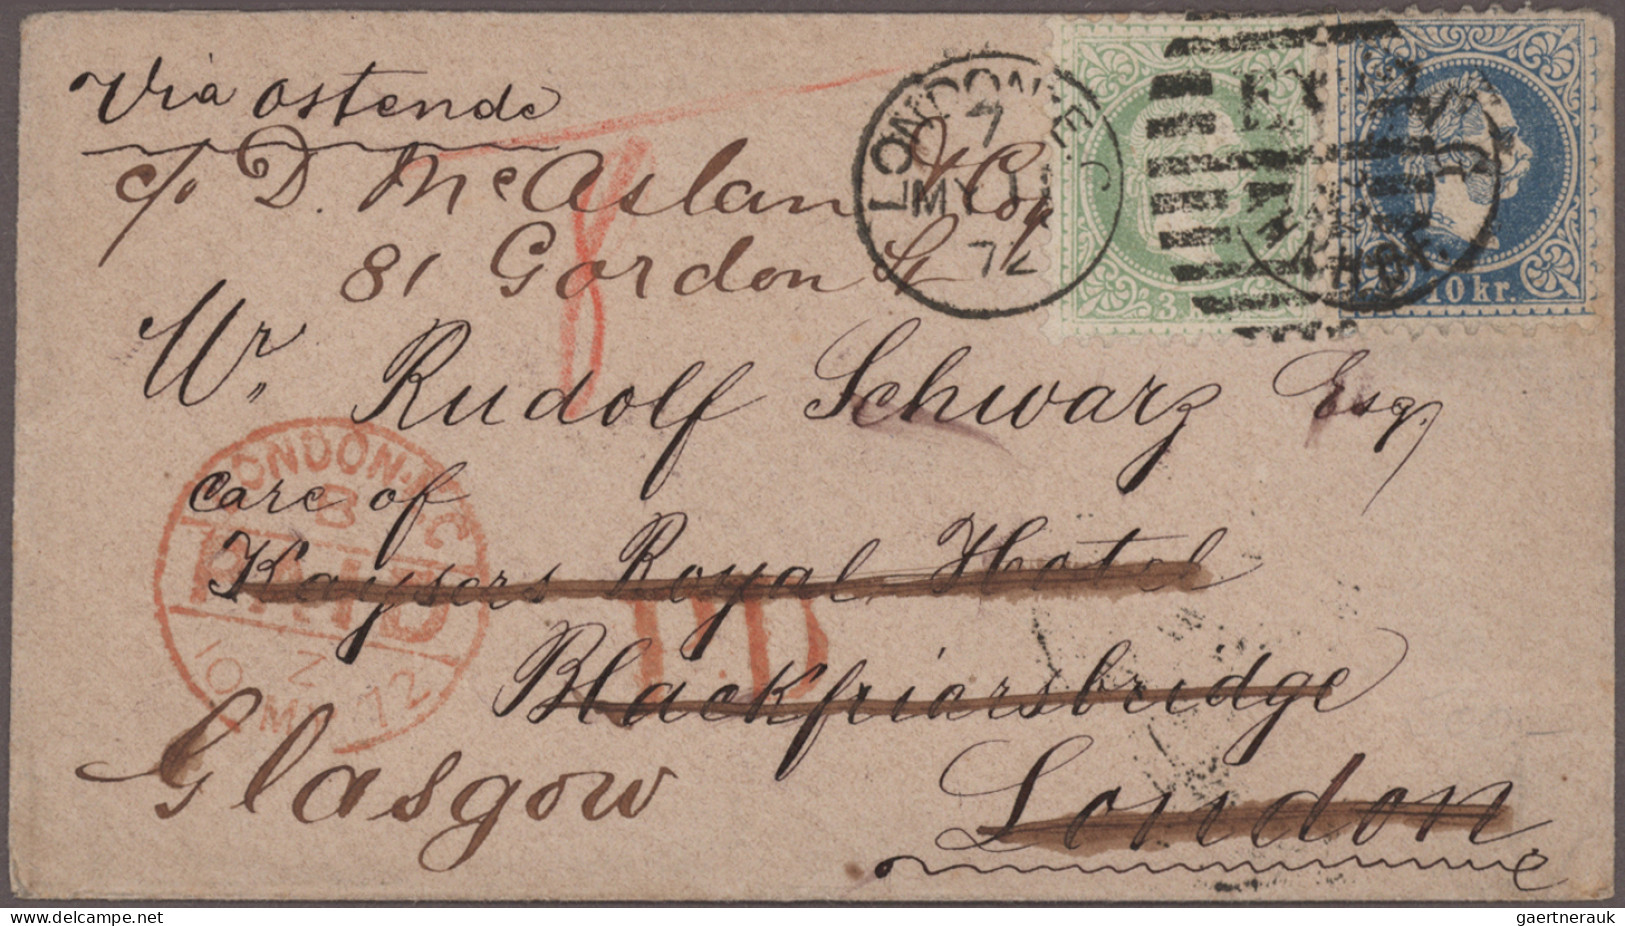 Via Ostende
c/o D. McAslan & Coy
81 Gordon St
Mr. Rudolf Schwarz Esq.
care of
Kaysers Royal Hotel
Blackfriarsbridge
London
Glasgow
LONDON E.C
7
MY 11
72
LONDON. E.C
B
PAID
Z
10 MY 72
P.D
E.C
BAHNHOF
3
10 kr.
gaertnerauk